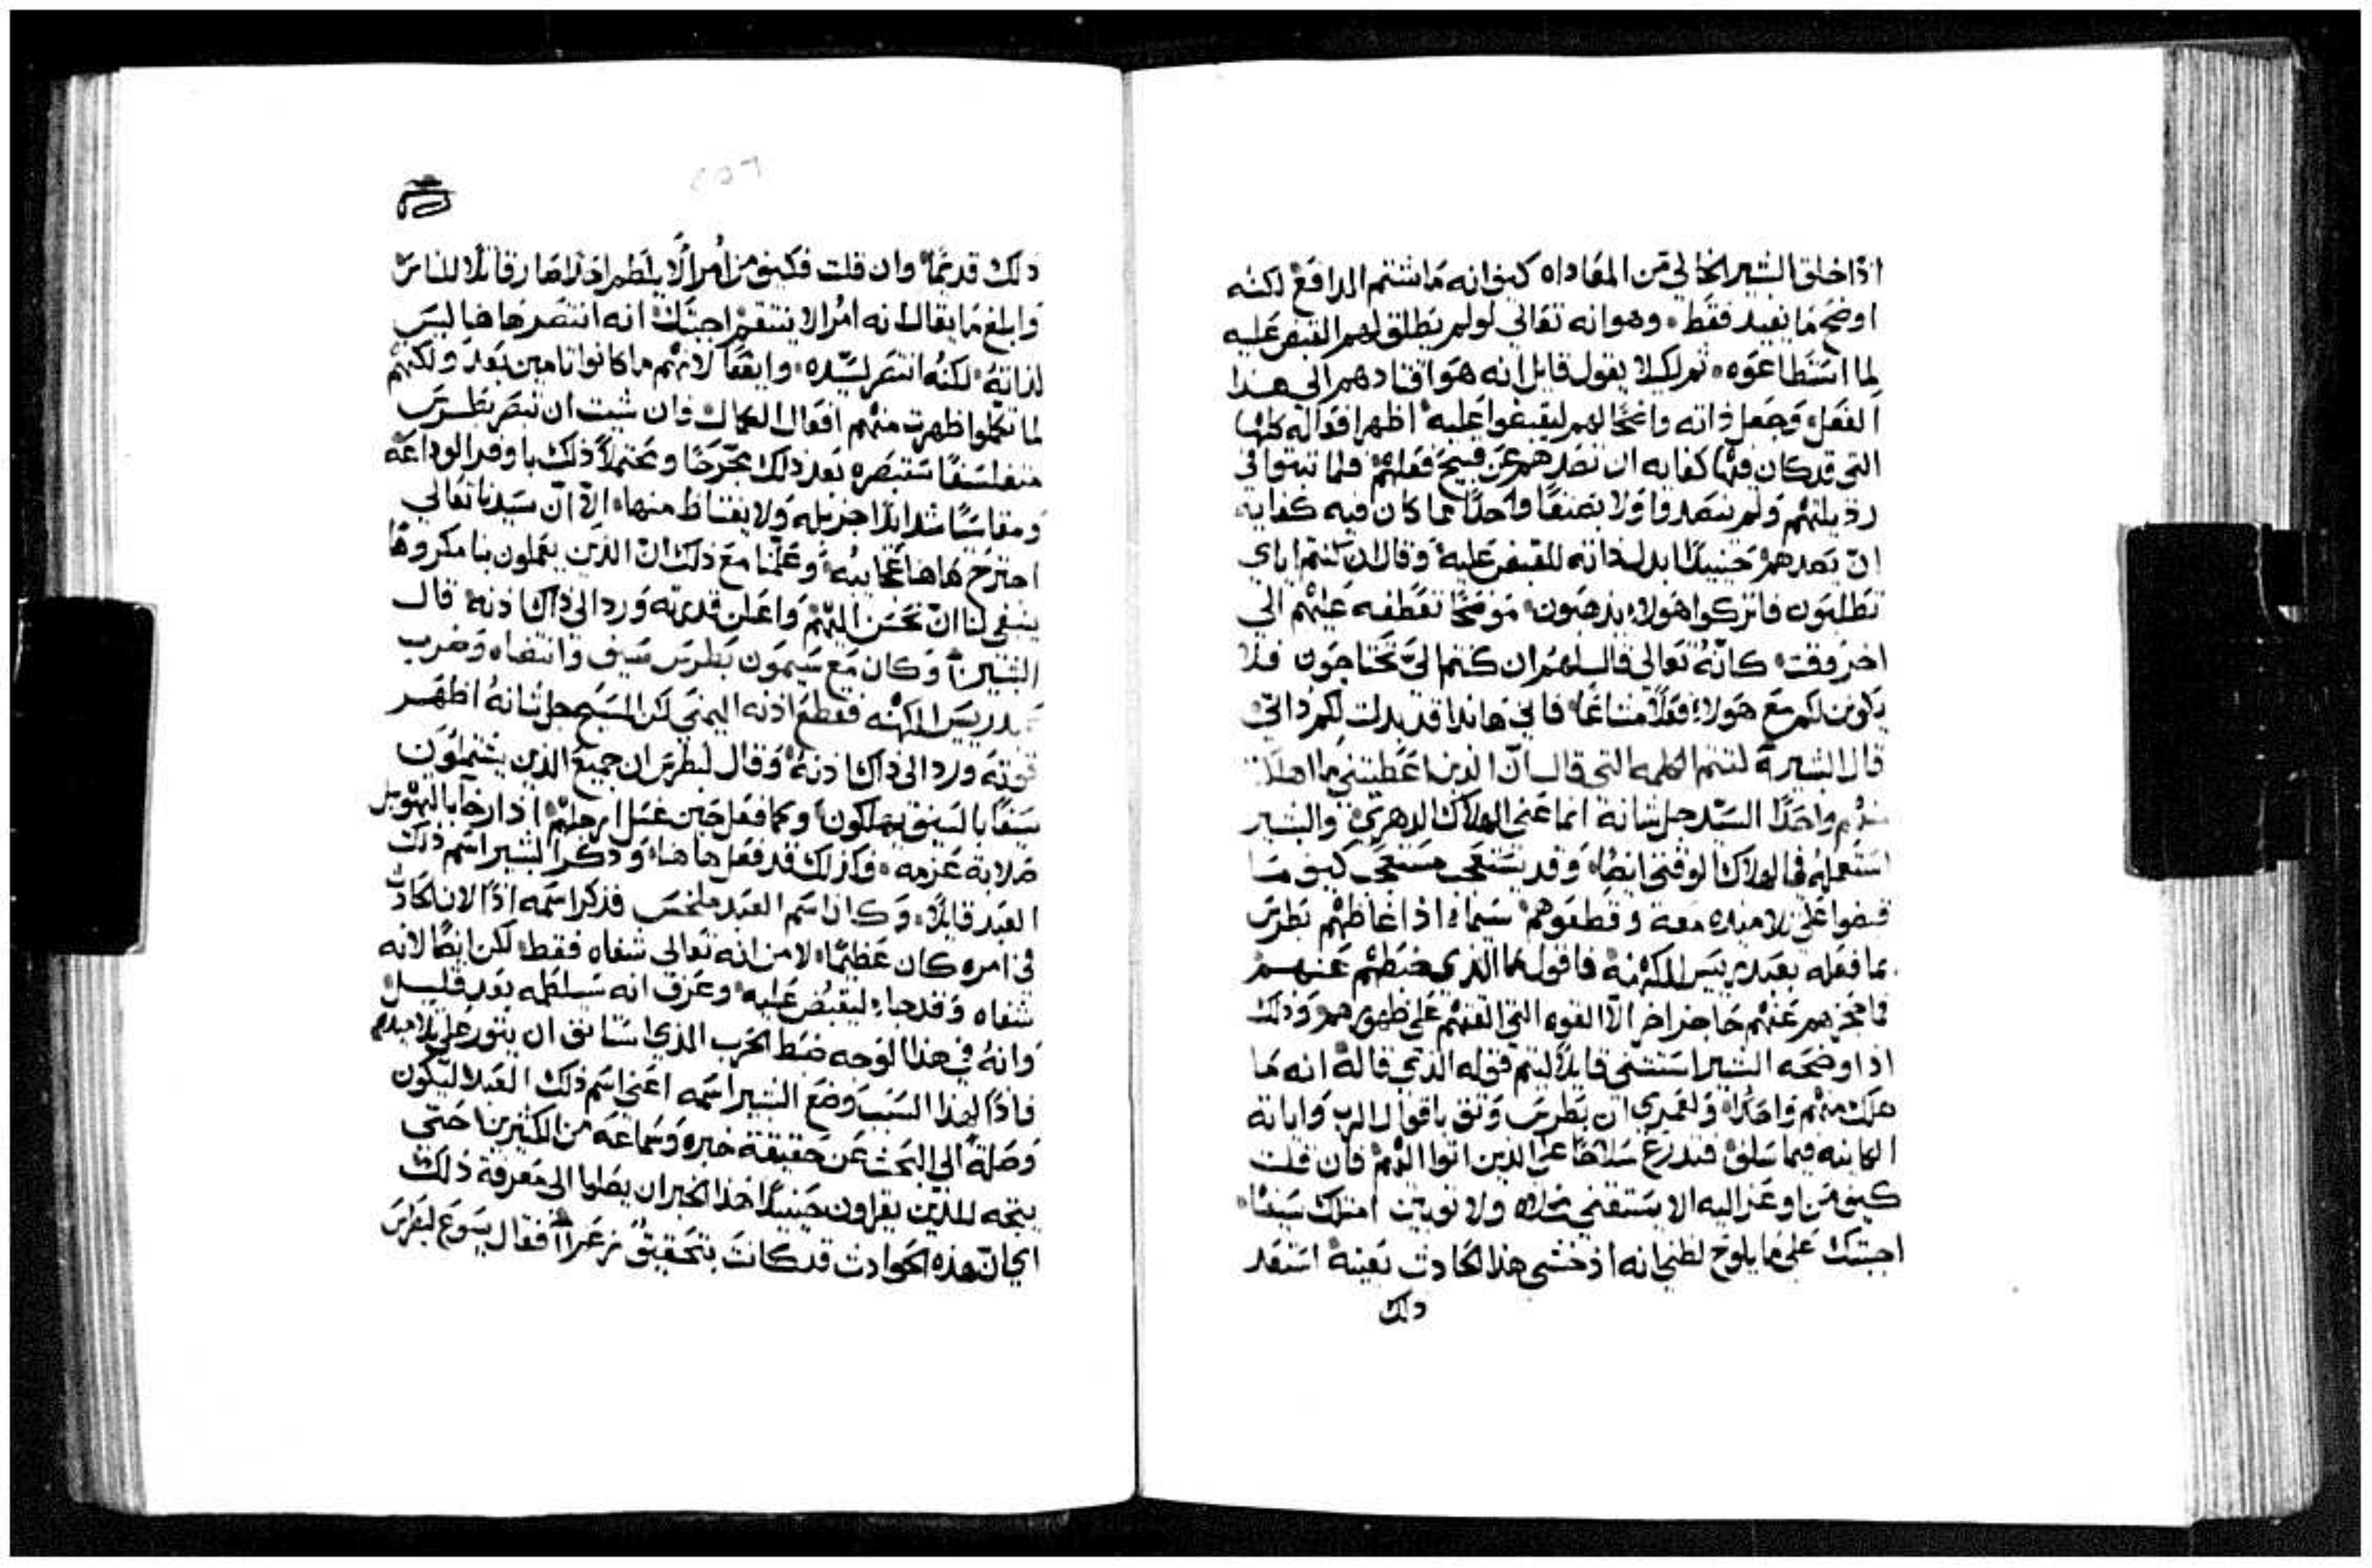 اذا خلق البشير الخالي من المعاداه كيف انه ما شتم الدافع لكنه
اوضح ما يفيد فقط وهو انه تعالي لو لم يطلق لهم القبض عليه
لما استطاعوه ثم لكيلا يقول قايل انه هو اقتادهم الي هذا
الفعل وجعل ذاته لهم ليقبضوا عليه اظهر افعاله كلها
التي قد كان فيها كفايه ان تصدهم عن قبيح فعلهم فلما ثبتوا في
رذيلتهم ولم يتصدقوا ولا واحدًا مما كان فيه كفايه
ان يصدهم حينيدٍ بدل ذاته للقبض عليه وقال ان كنتم اياي
تطلبون فاتركوا هولاء يذهبون موضحًا تعطفه عليهم الي
اخر وقت كانه تعالي قال لهم ان كنتم الي تحتاجون فلا
يكون لكم مع هولاء فعلاً مشاعًا فاني هانذا قد بدلت لكم ذاتي
قال البشير لتتم الكلمه التي قال ان الذين اعطيتني ما اهلك
منهم واحدًا السيد جل شانه انما عني الهلاك الدهري والبشير
استعمله في الهلاك الوقتي ايضًا وقد يستعجب مستعجب كيف ما
قبضوا علي تلاميذه معه وقطعوهم سيما اذا غاظهم بطرس
بما فعله بعبد ريس الكهنه فاقول ما الذي ضبطهم عنهم
فما حجزهم عنهم حاجز اخر الا القوه التي القتهم علي ظهورهم وذلك
اذ اوضحه البشير استثني قايلاً ليتم قوله الذي قاله انه ما
هلك منهم واحدًا ولعمري ان بطرس وثق باقوال الرب واياته
الكاينه فيما سلف فتدرع سلاحًا علي الذين اتوا اليهم فان قلت
كيف من اوعز اليه الا يستقني ولا ثوبين امتلك سيفًا
اجبتك علي ما يلوح لظني انه اذ خشي هذا الحادث بعينه استعد
ذلك
ذلك قديمًا وان قلت فكيف من امر الا يلطم احدًا صار قاتلاً للناس
وابلغ ما يقال انه امر الا ينتقم اجبتك انه انتصر هاهنا ليس
لذاته لكنه انتصر لسيده وايضًا لانهم ما كانوا تامين بعد ولكنهم
لما تكملوا ظهرت منهم افعال الكمال وان شيت ان تبصر بطرس
متفلسفًا ستبصره بعد ذلك مجرحًا ومحتملاً ذلك باوفر الوداعه
ومقاسيًا شدايدًا جزيله ولا يغتاظ منها الا ان سيدنا تعالي
اجترح هاهنا عجايبه وعلمنا مع ذلك ان الذين يعملون بنا مكروهًا
ينبغي لنا ان نحسن اليهم واعلن قدرته ورد الي ذاك اذنه قال
البشير وكان مع سيمون بطرس سيف وانتضاه وضرب
عبد ريس الكهنه فقطع اذنه اليمني لكن المسيح جل شانه اظهر
قوته ورد الي ذاك اذنه وقال لبطرس ان جميع الذين يشتملون
سيفًا بالسيف يهلكون وكما فعل حين غسل ارجلهم اذ ارخا بالتهويل
صلابة عزمه وكذلك قد فعل هاهنا وذكر البشير اسم ذلك
العبد قايلاً وكان اسم العبد ملخس فذكر اسمه اذًا لان الحادث
في امره كان عظيمًا لا من انه تعالي شفاه فقط لكن ايضًا لانه
شفاه وقد جاء ليقبض عليه وعرف انه سيلطمه بعد قليل
وانه في هذا الوجه ضبط الحرب الذي استانف ان يثور علي تلاميذه
فاذًا لهذا السبب وضع البشير اسمه اعني اسم ذلك العبد ليكون
وصلة الي البحث عن حقيقة خبره وسماعه من الكثيرين حتي
يتجه للذين يقراون حينيدٍ هذا الخبر ان يصلوا الي معرفة ذلك
اي ان هذه الحوادث قد كانت بتحقيق فقال يسوع لبطرس